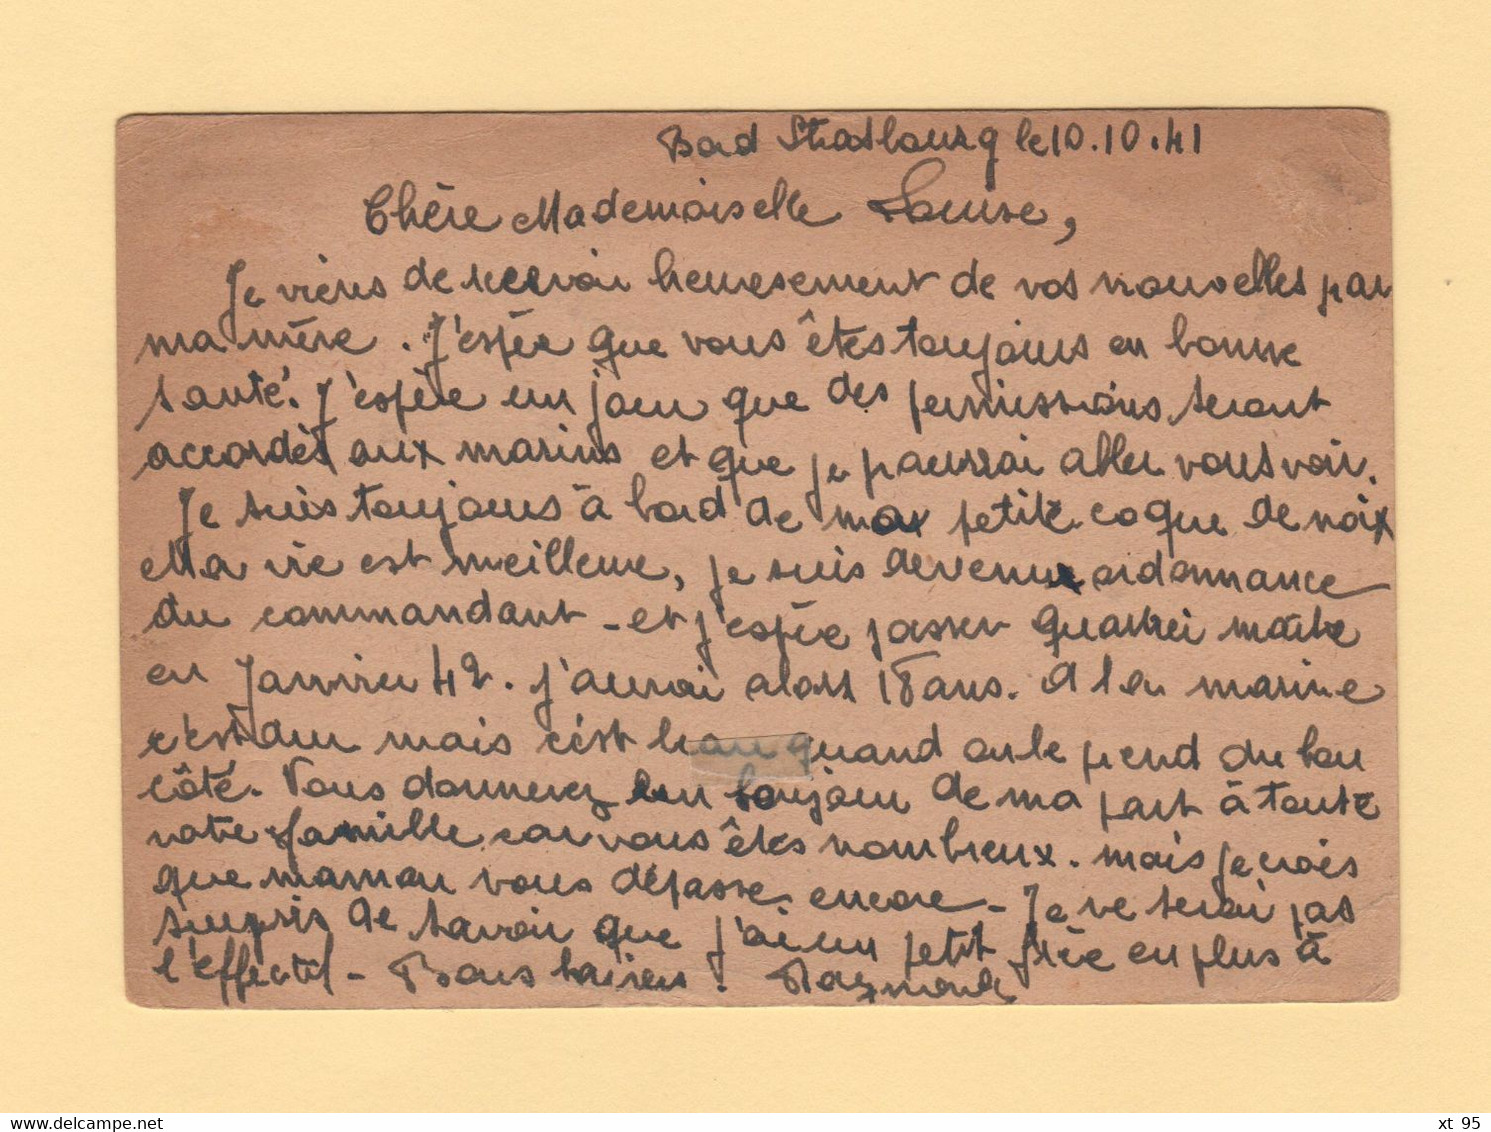 Bord Strasbourg le 10.10.41
Chère Mademoiselle Louise,
Je viens de recevoir heureusement de vos nouvelles par
ma mère. J'espère que vous êtes toujours en bonne
santé. J'espère un jour que des permissions seront
accordés aux marins et que je pourrai aller vous voir.
Je suis toujours à bord de ma petite coque de noix
Ma vie est meilleure, je suis devenu ordonnance
du commandant - et j'espère passer quartier maître
en Janvier 42. J'aurai alors 18 ans. A la marine
c'est dur mais c'est beau quand on le prend du bon
côté. Vous donnerez bonjour de ma part à toute
votre famille car vous êtes nombreux. mais je crois
que maman vous dépasse encore - Je ne serai pas
surpris de savoir que j'ai un petit frère en plus à
l'effectif - Bons baisers. Raymond
delcampe.net
xt 95